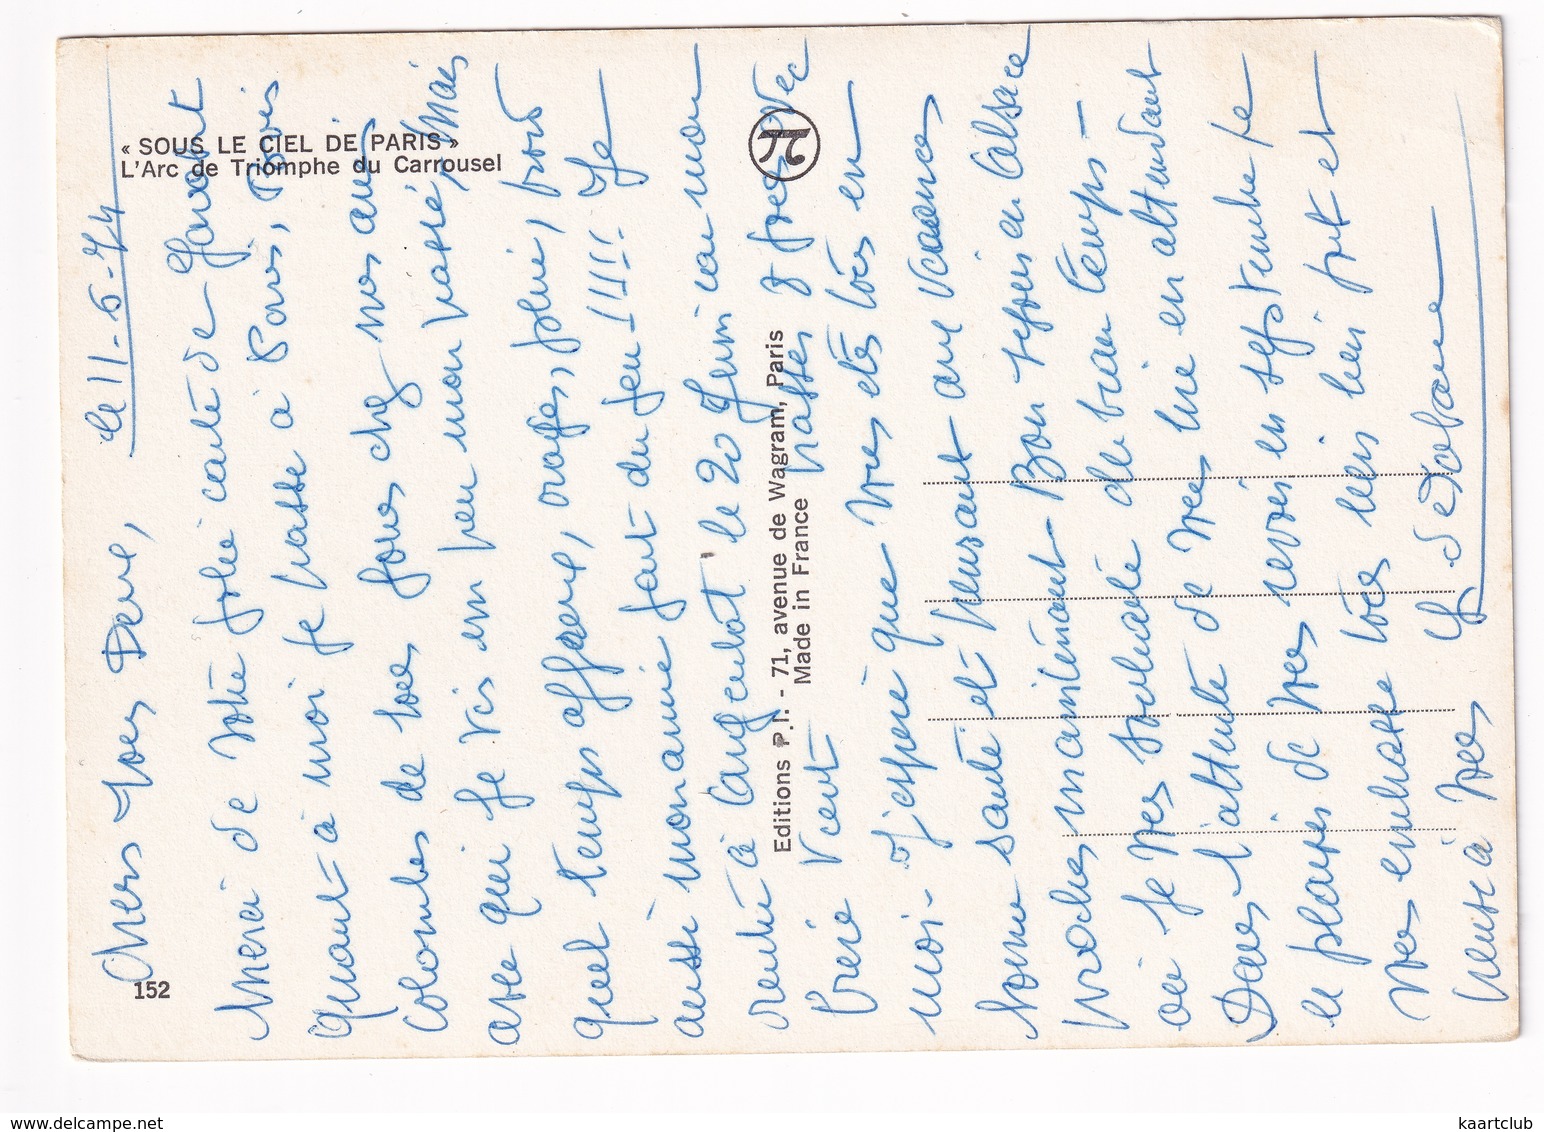 « SOUS LE CIEL DE PARIS »
L'Arc de Triomphe du Carrousel
152
Editions P.I. - 71, avenue de Wagram, Paris
Made in France
le 11-6-74
Chers tous Deux,
Merci de votre jolie carte de
Quant à moi je passe à Paris, trois
Colombes de tous jours chez nos amis
avec qui je vis un peu mon passé, Mais
quel temps affreux, orages, pluie, froid
aussi ma mie fait du feu !!!! Je
rentre à le 20 Juin car mon
frère vient passer 8 jours avec
moi - J'espère que vous êtes tous en
bonne santé et pensant aux vacances
proches maintenant - Bon séjour en Alsace
où je vous souhaite du beau temps -
Dans l'attente de vous lire en attendant
le plaisir de vous revoir en septembre je
vous embrasse tous deux bien fort et
pense à vous